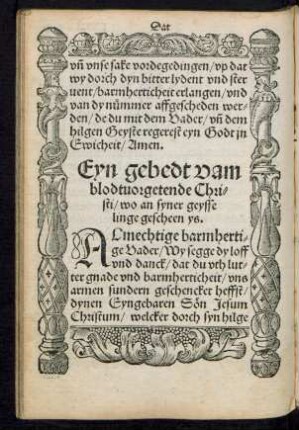 Dat
vn̄ vnse sake vordegedingen/ vp dat
wy dorch dyn bitter lydent vnd ster
uent/ barmherticheit erlangen/ vnd
van dy nümmer affgescheden wer-
den/ de du mit dem Vader/ vn̄ dem
hilgen Geyste regerest eyn Godt jn
Ewicheit/ Amen.
Eyn gebedt vam
blodtuorgetende Chri-
sti/ wo an syner geysse
linge gescheen ys.
ALmechtige barmherti-
ge Vader/ Wy segge dy loff
vnd danck/ dat du vth lut-
ter gnade vnd barmherticheit/ vns
armen sundern geschencket heffst/
dynen Eyngebaren Sön Jesum
Christum/ welcker dorch syn hilge